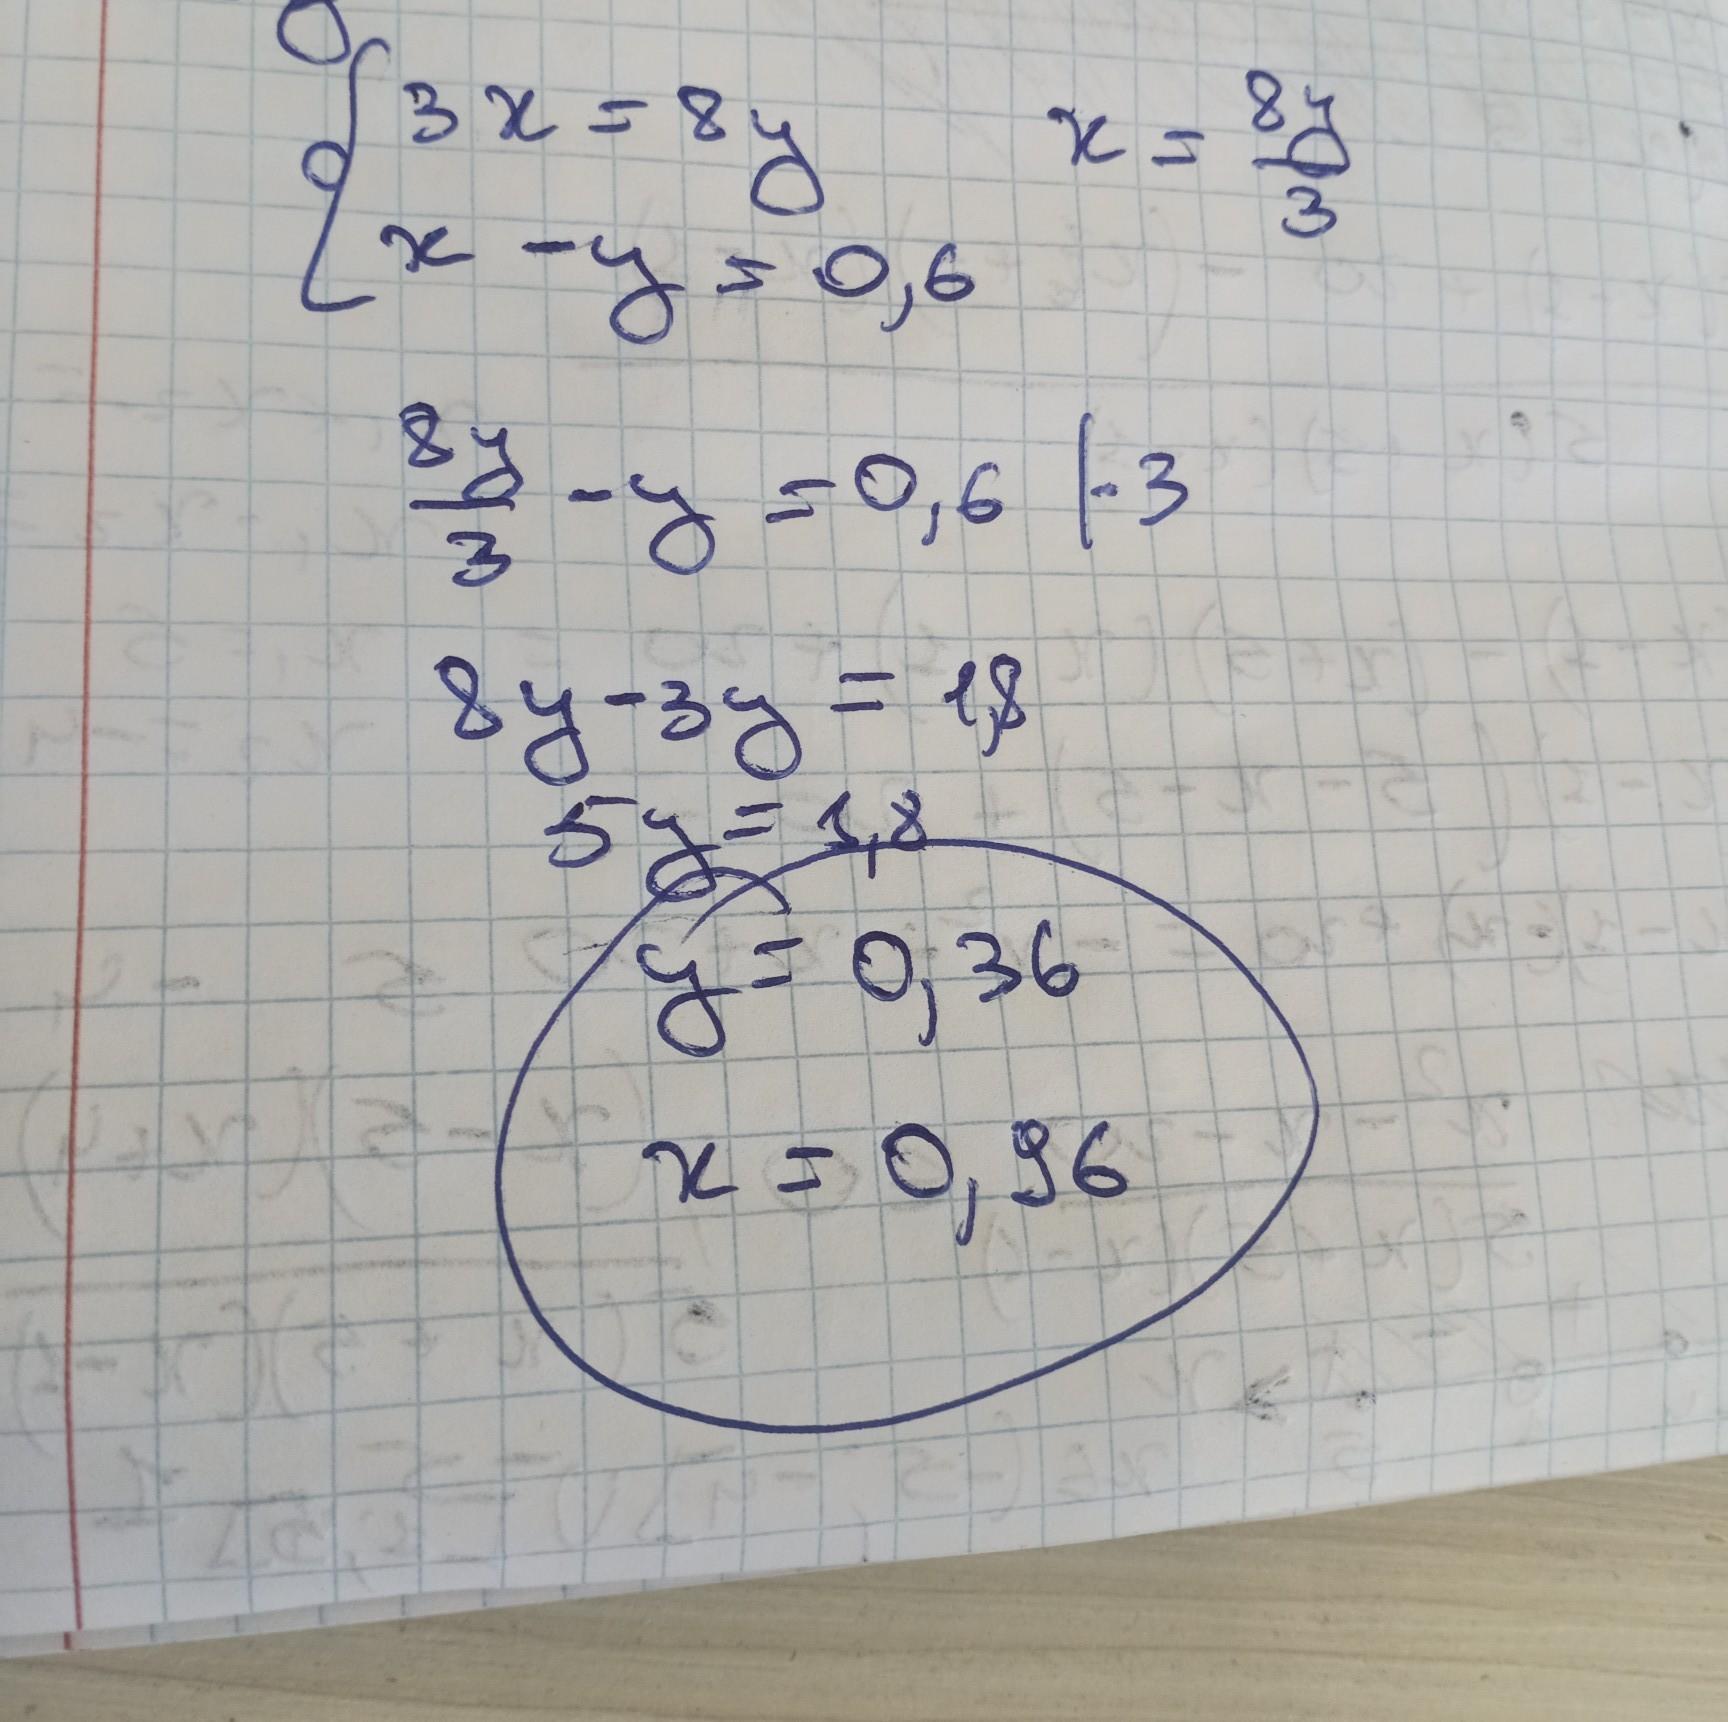 3x = 8y
x = 8y/3
x - y = 0,6
8y/3 - y = 0,6 | · 3
8y - 3y = 1,8
5y = 1,8
y = 0,36
x = 0,96